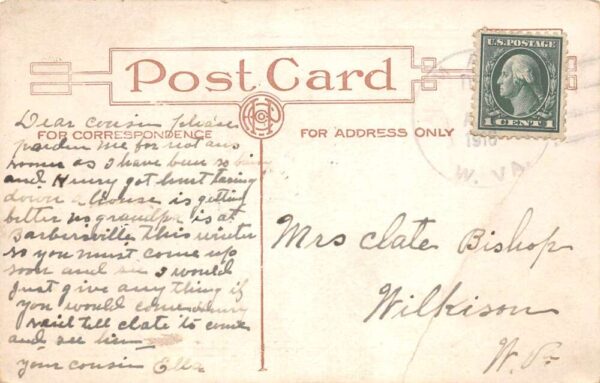 Post Card
FOR CORRESPONDENCE
FOR ADDRESS ONLY
U.S. POSTAGE
1 CENT 1
1916
W. VA
Dear cousin please
parden me for not ans
sooner as I have been so busy
and Henry got hurt taring
down a house is getting
better us grandpa is at
Barbersville this winter
so you must come up
soon and see I would
Just give any thing if
you would come Henry
said tell clate to come
and see him
your cousin Ella
Mrs Clate Bishop
Wilkison
W. Va